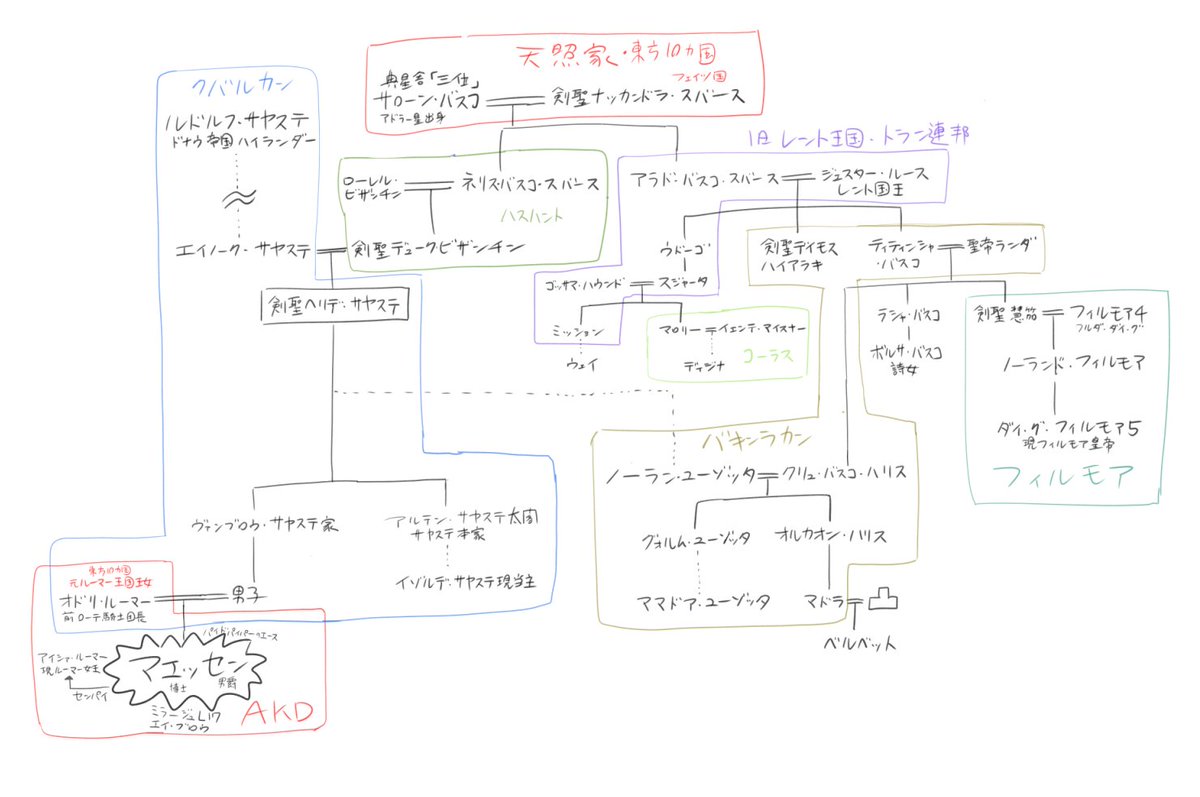 天照家・東方10カ国
フェイツ国
典星舎「三仕」
サローン・バスコ
アドラー星出身
剣聖ナッカンドラ・スバース
クバルカン
ルドルフ・サヤステ
ドナウ帝国ハイランダー
旧レント王国・トラン連邦
ローレル・
ビザンチン
ネリス・バスコ・スバース
ハスハント
アラド・バスコ・スバース
ジュスター・ルース
レント国王
エイノーク・サヤステ
剣聖デュークビザンチン
剣聖ヘリデ・サヤステ
ウドーゴ
剣聖デイモス
ハイアラキ
ティティンシャ
・バスコ
聖帝ランダ
ゴッサマ・ハウンド
スジャータ
ミッション
ウェイ
マロリー
イエンテ・マイスナー
ディジナ
コーラス
ラシャ・バスコ
ボルサ・バスコ
詩女
剣聖慧茄
フィルモア4
フルダ・ダイ・グ
ノーランド・フィルモア
ダイ・グ・フィルモア5
現フィルモア皇帝
フィルモア
バキンラカン
ノーラン・ユーゾッタ
クリュ・バスコ・ハリス
グォルム・ユーゾッタ
オルカオン・ハリス
ママドア・ユーゾッタ
マドラ
凸
ベルベット
ヴァンブロウ・サヤステ家
アルテン・サヤステ太閤
サヤステ本家
イゾルデ・サヤステ現当主
東方10カ国
元ルーマー王国王女
オドリ・ルーマー
前ローテ騎士団長
男子
パイドパイパーのエース
アイシャ・ルーマー
現ルーマー女王
センパイ
マエッセン
博士
男爵
ミラージュL17
エイ・ブロウ
AKD